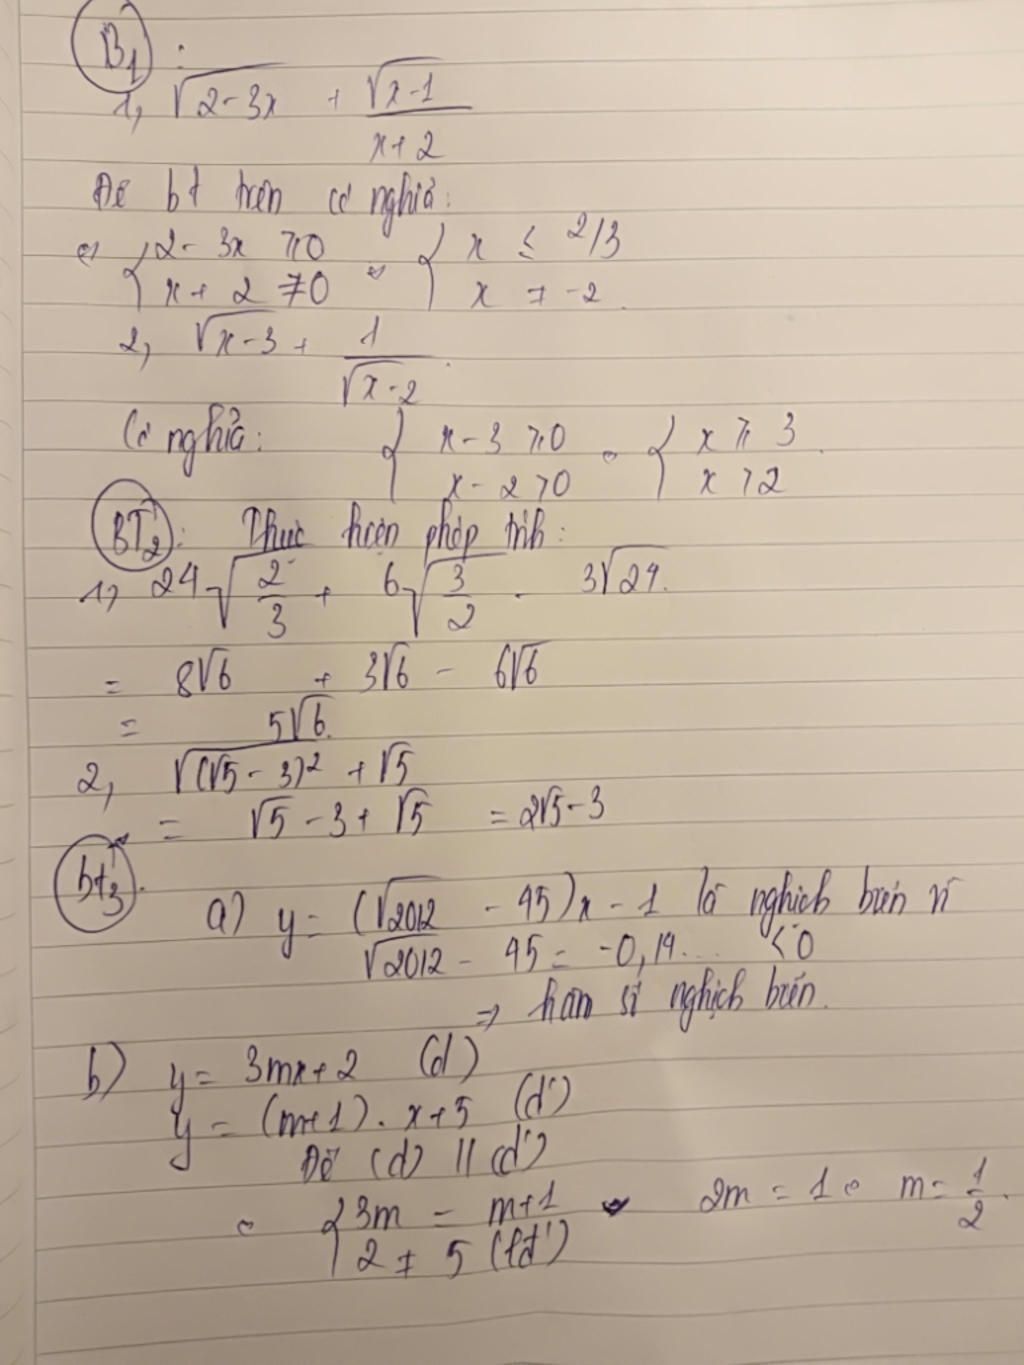 B1 :
1, √(2-3x) + √(x-1) / (x+2)
Để bt trên có nghĩa:
⇔ { 2-3x ≥ 0 ⇔ { x ≤ 2/3
x + 2 ≠ 0 x ≠ -2.
2, √(x-3) + 1/√(x-2)
Có nghĩa: { x-3 ≥ 0 ⇔ { x ≥ 3.
x-2 > 0 x > 2
BT2: Thực hiện phép tính:
1, 24√(2/3) + 6√(3/2) - 3√24.
= 8√6 + 3√6 - 6√6
= 5√6.
2, √((√5-3)²) + √5
= √5 - 3 + √5 = 2√5 - 3
bt3.
a) y = (√2012 - 45)x - 1 là nghịch biến vì
√2012 - 45 = -0,14... < 0
⇒ hàm số nghịch biến.
b) y = 3mx + 2 (d)
y = (m+1). x + 5 (d')
Để (d) // (d')
⇔ { 3m = m+1 ⇔ 2m = 1 ⇔ m = 1/2.
2 ≠ 5 (lđ)